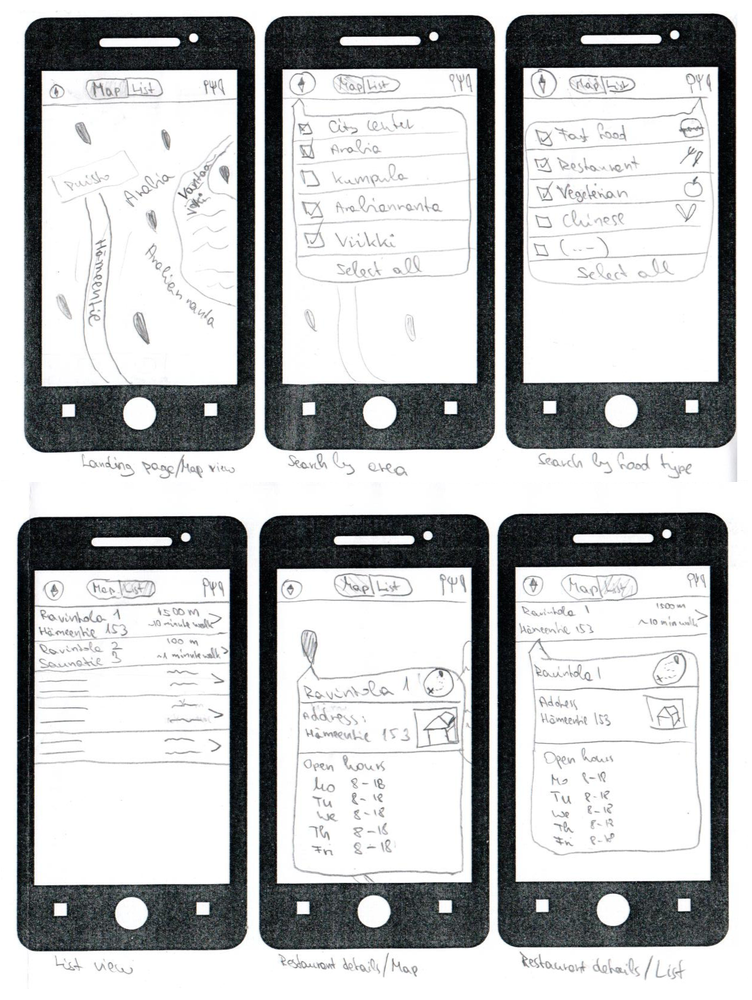 Map List
Puisto
Arabia
Vantaa
Hämeentie
Arabianranta
Landing page/Map view
Map List
City center
Arabia
Kumpula
Arabianranta
Viikki
Select all
Search by area
Map List
Fast food
Restaurant
Vegeterian
Chinese
(...)
Select all
Search by food type
Map List
Ravintola 1 1500 m
Hämeentie 153 ~10 minute walk
Ravintola 2 100 m
Saunatie 3 ~1 minute walk
List view
Map List
Ravintola 1
Address:
Hämeentie 153
Open hours
Mo 8-18
Tu 8-18
We 8-18
Th 8-18
Fri 8-18
Restaurant details/Map
Map List
Ravintola 1 1500 m
Hämeentie 153 ~10 min walk
Ravintola 1
Address
Hämeentie 153
Open hours
Mo 8-18
Tu 8-18
We 8-18
Th 8-18
Fri 8-18
Restaurant details/List